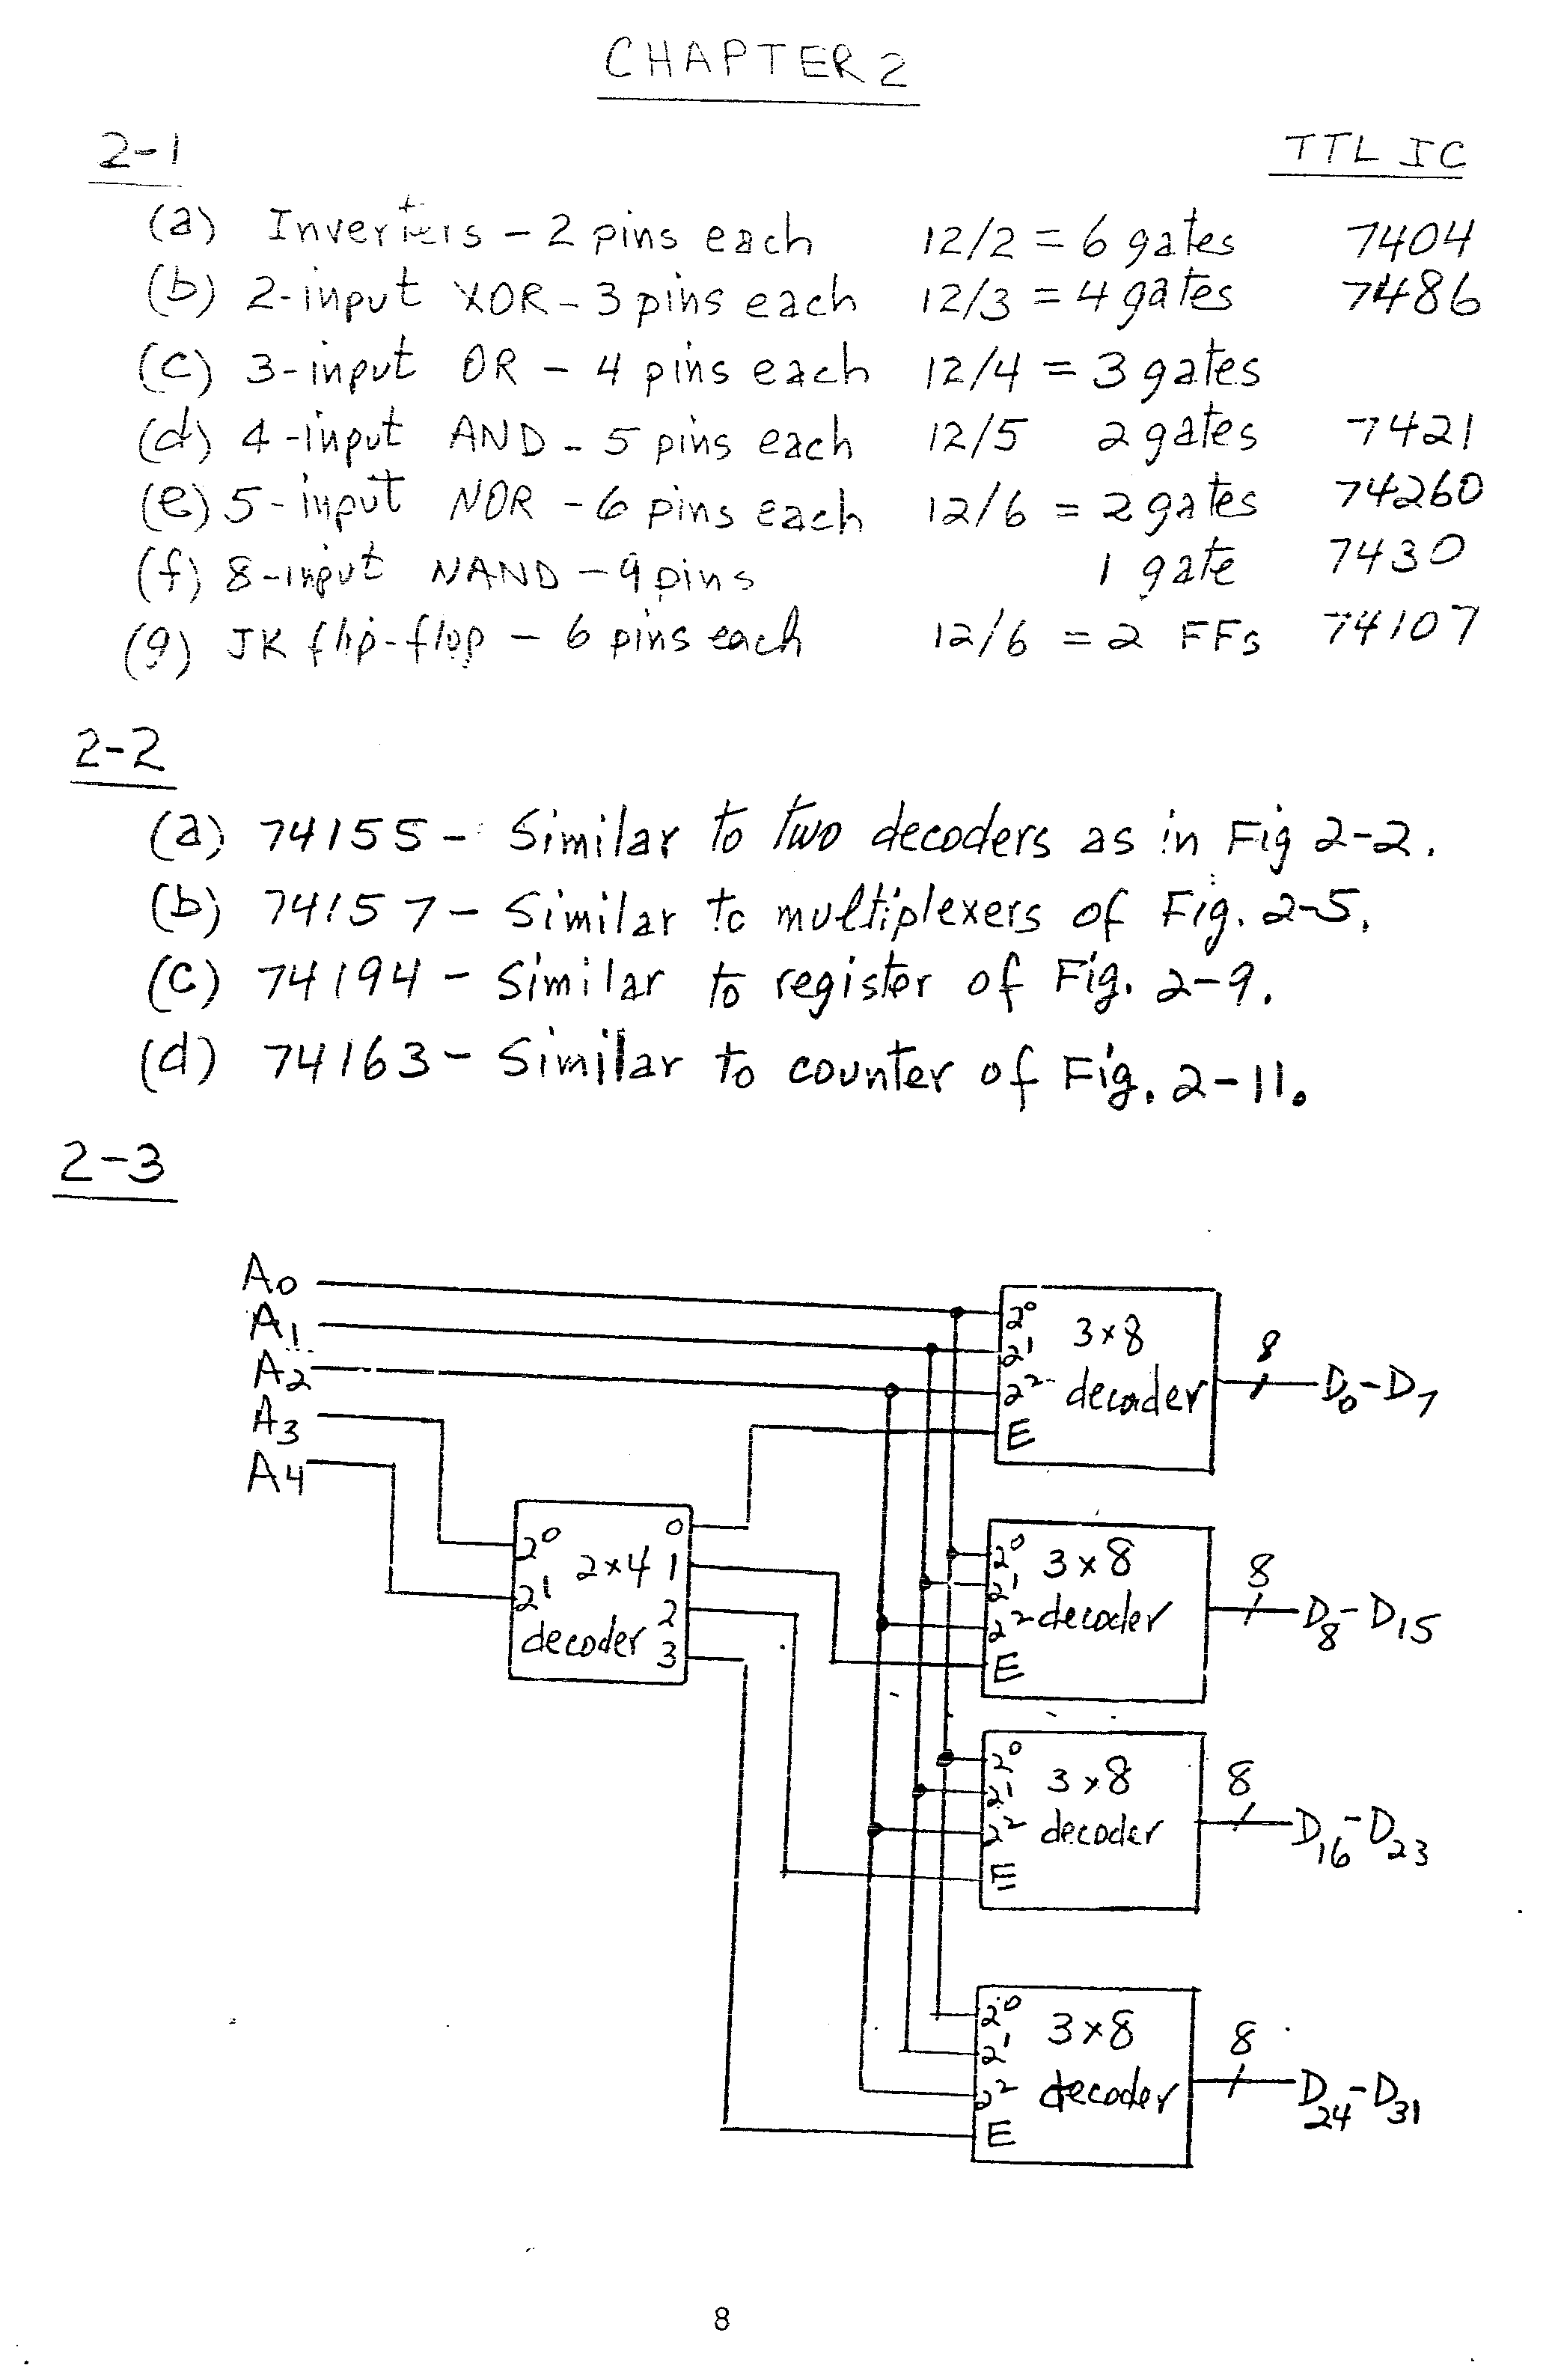 CHAPTER 2
2-1 TTL IC
(a) Inverters - 2 pins each 12/2 = 6 gates 7404
(b) 2-input XOR - 3 pins each 12/3 = 4 gates 7486
(c) 3-input OR - 4 pins each 12/4 = 3 gates
(d) 4-input AND - 5 pins each 12/5 2 gates 7421
(e) 5-input NOR - 6 pins each 12/6 = 2 gates 74260
(f) 8-input NAND - 9 pins 1 gate 7430
(g) JK flip-flop - 6 pins each 12/6 = 2 FFs 74107
2-2
(a) 74155 - Similar to two decoders as in Fig 2-2.
(b) 74157 - Similar to multiplexers of Fig. 2-5.
(c) 74194 - Similar to register of Fig. 2-9.
(d) 74163 - Similar to counter of Fig. 2-11.
2-3
A0
A1
A2
A3
A4
2⁰
2¹
2×4
decoder
0
1
2
3
2⁰
2¹
2²
E
3×8
decoder
8
D0-D7
2⁰
2¹
2²
E
3×8
decoder
8
D8-D15
2⁰
2¹
2²
E
3×8
decoder
8
D16-D23
2⁰
2¹
2²
E
3×8
decoder
8
D24-D31
8